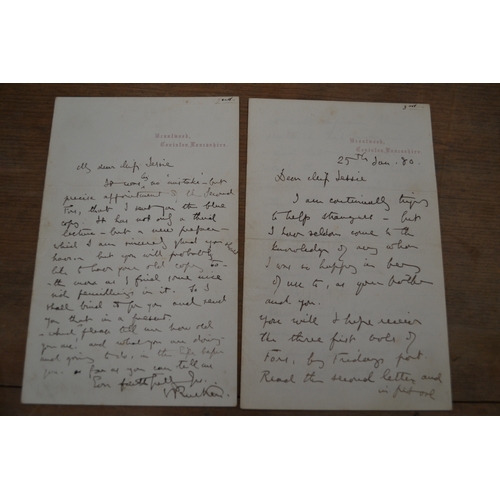 Brantwood,
Coniston, Lancashire.
My dear Miss Jessie
It was no 'mistake' - but
precise appointment to the Second
Fors, that I sent you the blue
copy. It has not only a third
lecture - but a new preface -
which I am sincerely glad you
have - but you will probably
like to have your old copy so -
the more as I find some nice
pencillings in it. So I
shall bind it for you and send
you that in a present.
- And please tell me how old
you are, and what you are doing
and going to do, in the life before
you - as far as you can tell me
Ever faithfully Yrs.
JRuskin.
Brantwood,
Coniston, Lancashire.
25th Jan. 80.
Dear Miss Jessie
I am continually trying
to help strangers - but
I have seldom come to the
knowledge of any whom
I was so happy in being
of use to, as your brother
and you.
You will I hope receive
the three first vols of
Fors, by Fridays post.
Read the second letter and